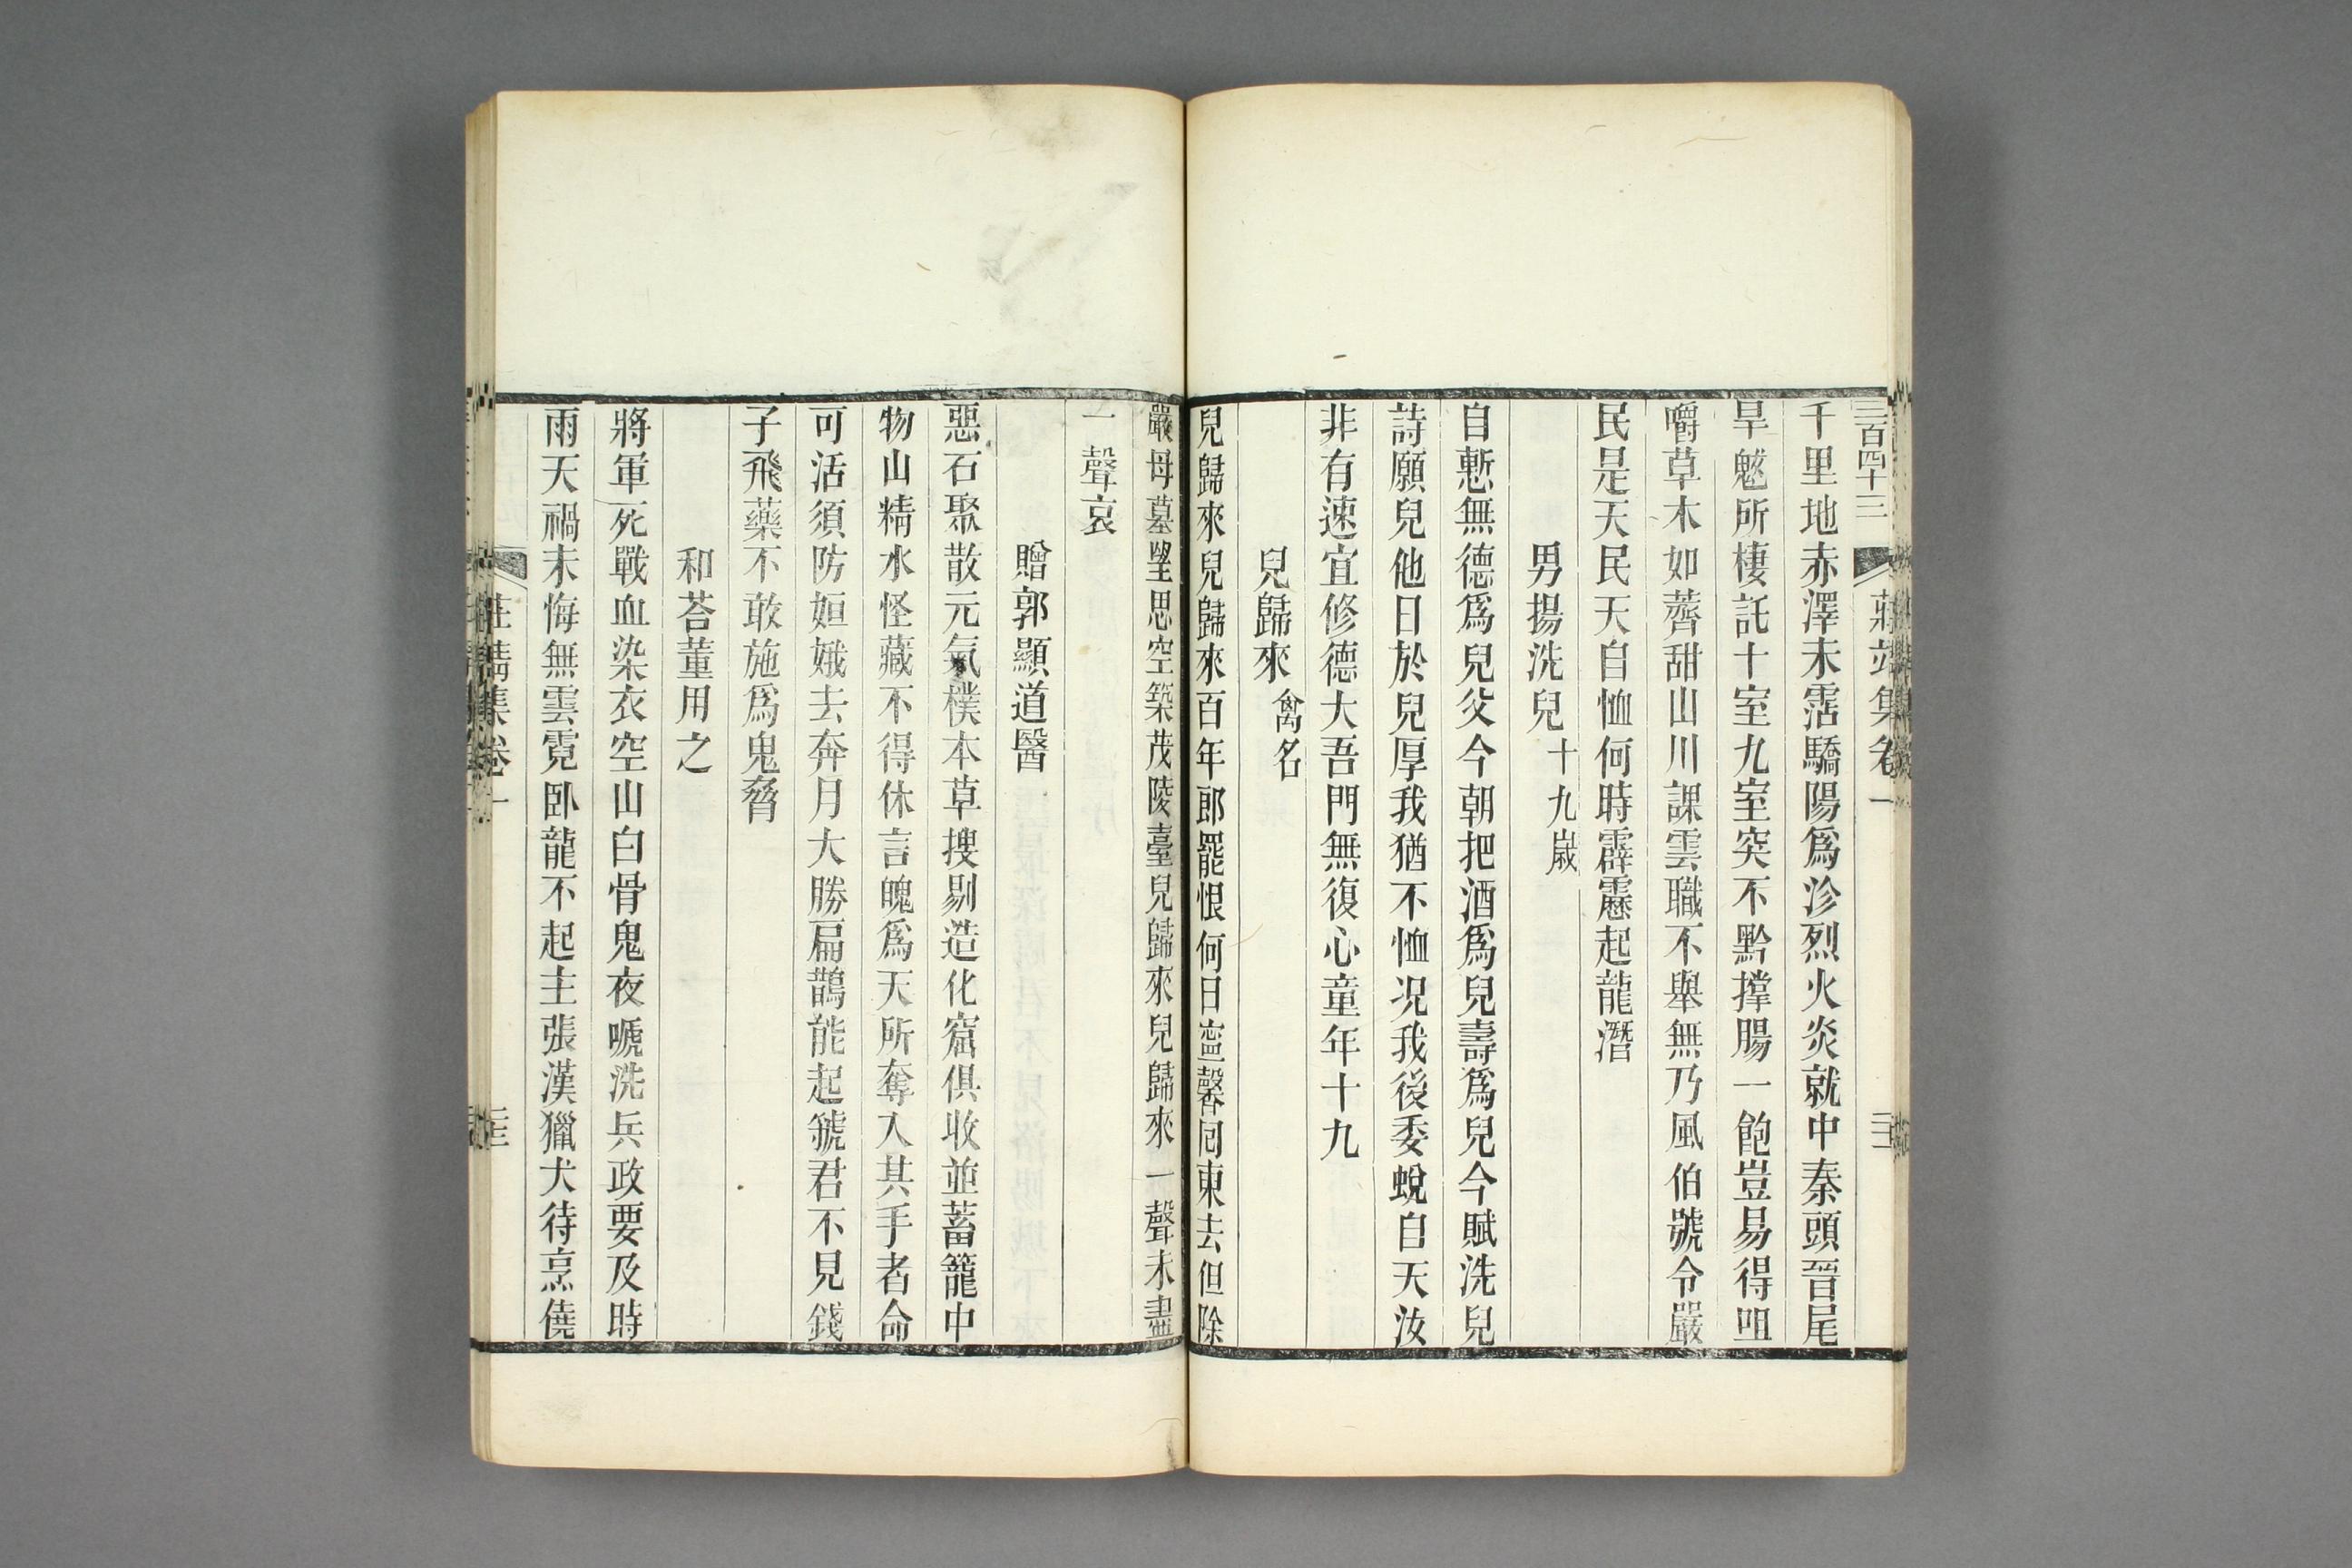 三百四十三
莊靖集卷一
千里地赤澤未霑驕陽爲沴烈火炎就中秦頭晉尾
旱魃所棲託十室九室突不黔撑腸一飽豈易得咀
嚼草木如薺甜山川課雲職不舉無乃風伯號令嚴
民是天民天自恤何時霹靂起龍潛
男揚洗兒十九歲
自慙無德爲兒父今朝把酒爲兒壽爲兒今賦洗兒
詩願兒他日於兒厚我猶不恤況我後委蛻自天汝
非有速宜修德大吾門無復心童年十九
兒歸來禽名
兒歸來兒歸來百年郎罷恨何日寍馨囘東去但除
嚴母墓朢思空築茂陵臺兒歸來兒歸來一聲未盡
一聲哀
贈郭顯道醫
惡石聚散元氣樸本草搜剔造化窟俱收並蓄籠中
物山精水怪藏不得休言魄爲天所奪入其手者命
可活須防姮娥去奔月大勝扁鵲能起虢君不見錢
子飛藥不敢施爲鬼脅
和荅董用之
將軍死戰血染衣空山白骨鬼夜嗁洗兵政要及時
雨天禍未悔無雲霓臥龍不起主張漢獵犬待烹僥
莊靖集卷一